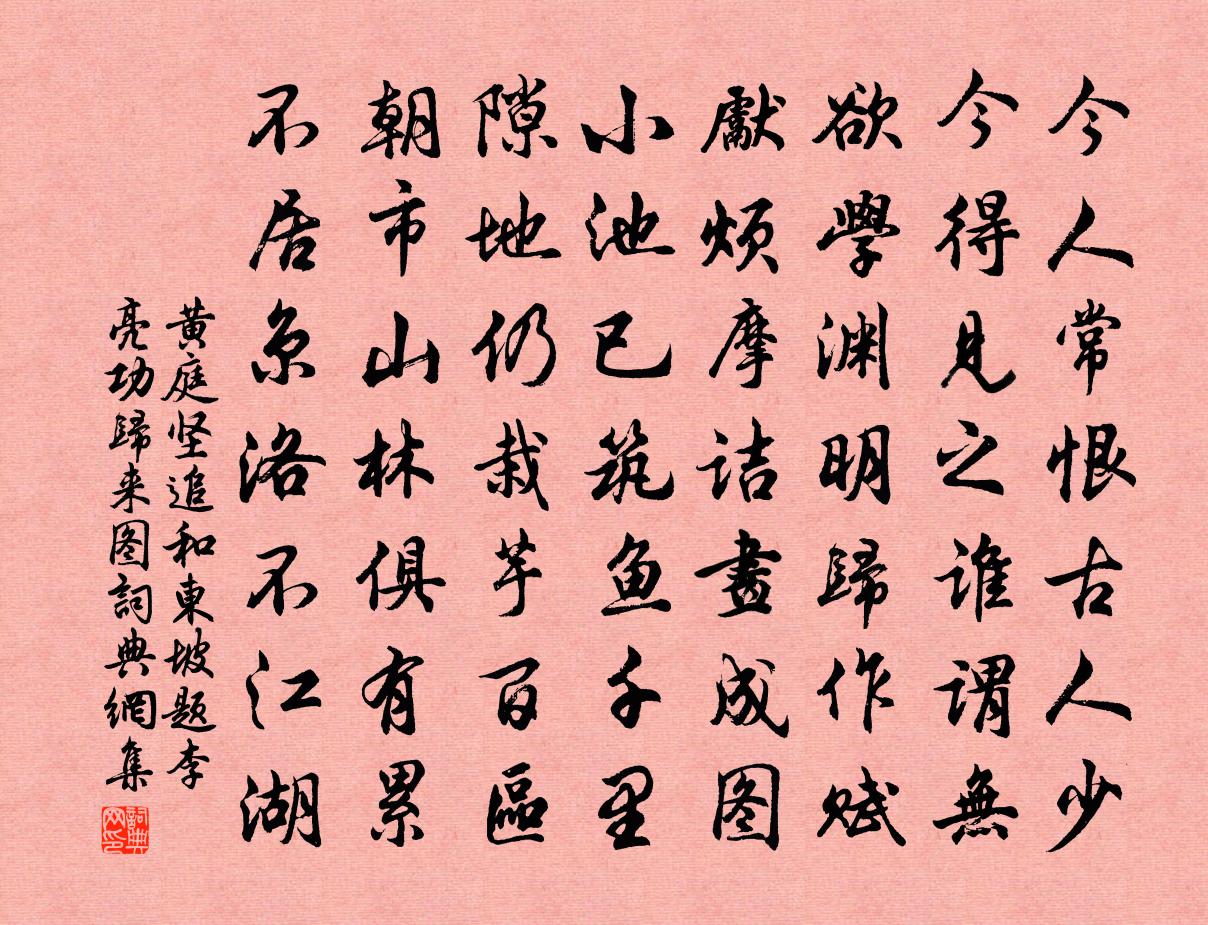 今人常恨古人少
今得見之誰謂無
欲學渊明歸作賦
獻煩摩詰畫成图
小池已筑鱼千里
隙地仍栽芋百區
朝市山林俱有累
不居京洛不江湖
黄庭坚追和東坡题李
亮功歸来图詞典網集
詞典
网印